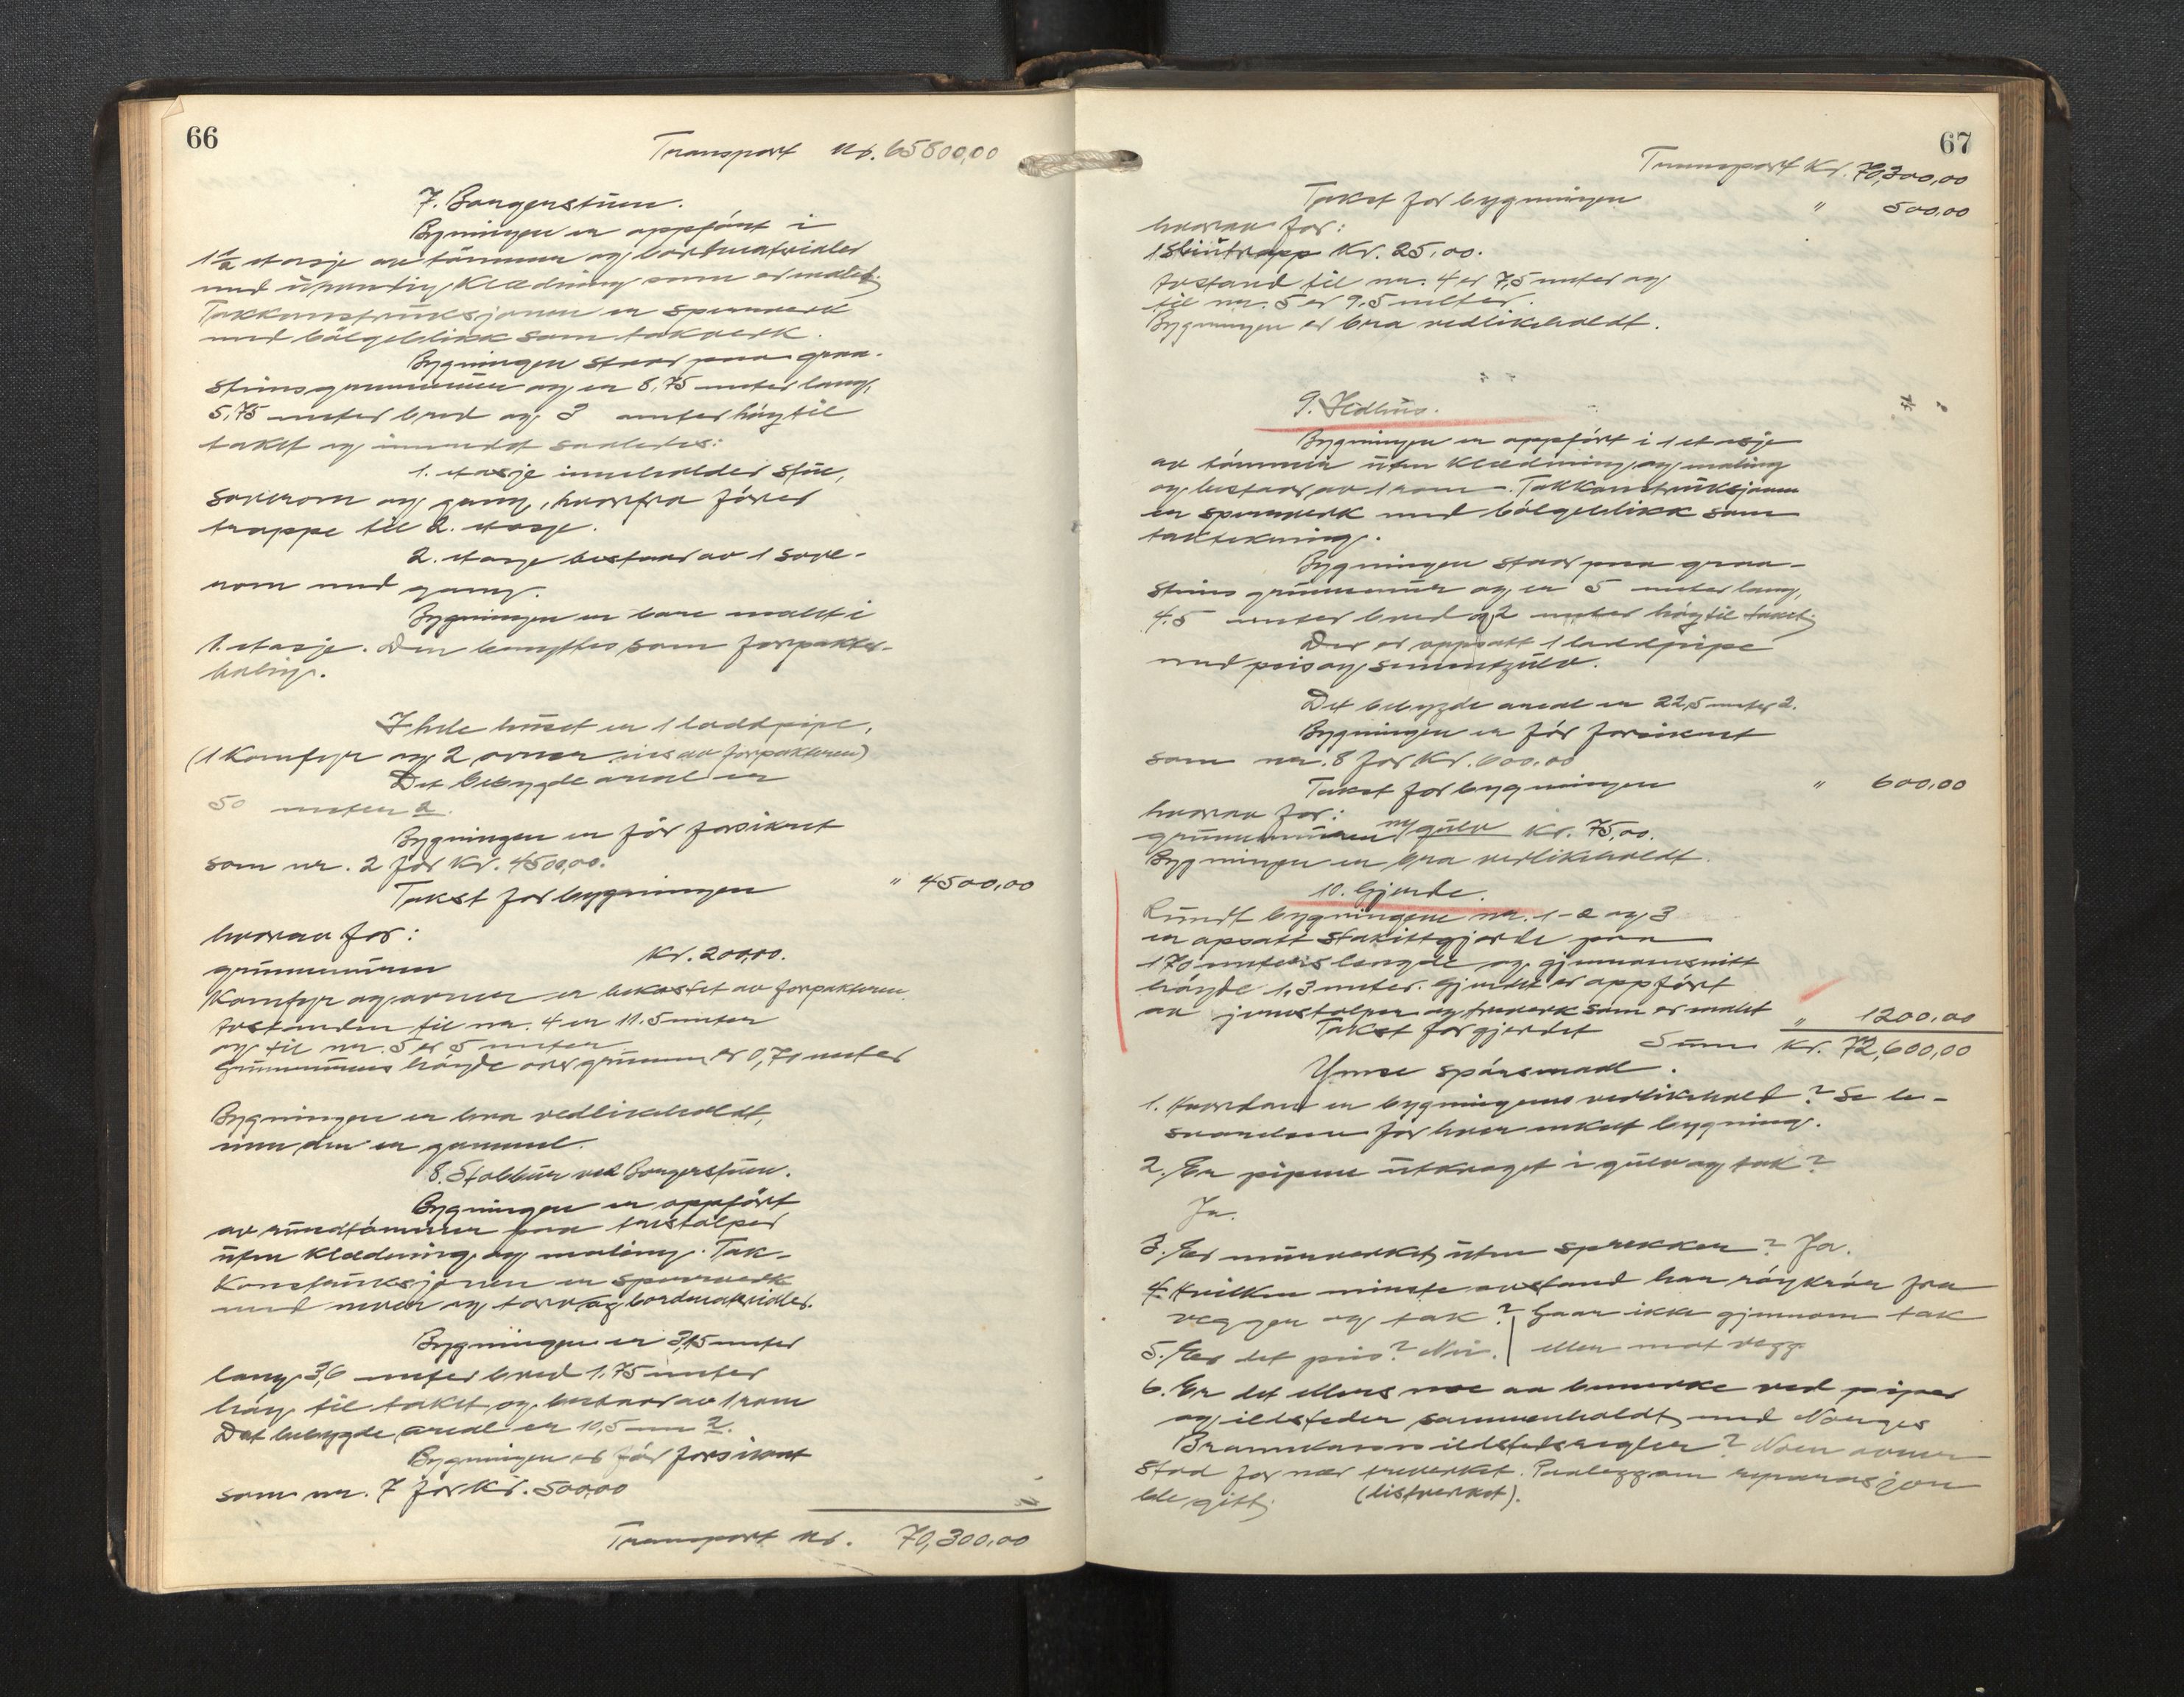 66
Transport Kr. 65800,00
7. Borgerstuen.
Bygningen er oppført i
1 1/2 etasje av tømmer og bordmaterialer
med utvendig Klædning som er malet.
Takkonstruksjonen er sperreverk
med bølgeblikk som takverk.
Bygningen staar paa graa-
stensgrunnmur og er 8,75 meter lang,
5,75 meter bred og 3 meter høy til
taket og innredet saaledes:
1. etasje inneholder stue,
soverom og gang, hvorfra fører
trappe til 2. etasje.
2. etasje bestaar av 1 sove-
rom med gang.
Bygningen er bare malet i
1. etasje. Den benyttes som forpakter-
bolig.
I hele huset er 1 loddpipe,
(1 Komfyr og 2 ovner eies av forpakteren)
Det bebygde areal er
50 meter 2.
Bygningen er før forsikret
som nr. 2 for Kr. 4500,00.
Takst for bygningen " 4500,00
hvorav for:
grunnmuren Kr. 200,00.
Komfyr og ovner er bekostet av forpakteren.
Avstanden til nr. 4 er 11.5 meter
og til nr. 5 er 5 meter.
Grunnmurens høyde over grunnen er 0,70 meter
Bygningen er bra vedlikeholdt,
men den er gammel.
8. Stabbur ved Borgerstuen.
Bygningen er oppført
av rundtømmer paa trestolper
uten Klædning og maling. Tak-
Konstruksjonen er sperreverk
med never og torv og bordmaterialer.
Bygningen er 3,15 meter
lang 3,6 meter bred 1,75 meter
høy til taket og bestaar av 1 rom
Det bebygde areal er 10,5 m 2.
Bygningen er før forsikret
som nr. 7 for Kr. 500,00
Transport Kr. 70,300,00
67
Transport Kr. 70,300,00
Takst for bygningen " 500,00
hvorav for:
1 Kr. 25,00.
Avstand til nr. 4 er 7,5 meter og
til nr. 5 er 9,5 meter.
Bygningen er bra vedlikeholdt.
9. Ildhus.
Bygningen er oppført i 1 etasje
av tømmer uten Klædning og maling
og bestaar av 1 rom. Takkonstruksjonen
er sperreverk med bølgeblikk som
taktekning.
Bygningen staar paa graa-
stens grunnmur og er 5 meter lang,
4.5 meter bred og 2 meter høy til taket.
Der er oppsatt 1 loddpipe
med peis og sementgulv.
Det bebygde areal er 22,5 meter 2.
Bygningen er før forsikret
som nr. 8 for Kr. 600,00
Takst for bygningen " 600,00
hvorav for:
grunnmuren og gulv Kr. 75,00.
Bygningen er bra vedlikeholdt.
10. Gjerde.
Rundt bygningene nr. 1-2 og 3
er opsatt stakittgjerde paa
170 meters lengde og gjennomsnitt
høyde 1,3 meter. Gjerdet er oppført
av jernstolper og treverk som er malet
Takst for gjerdet " 1200,00
Sum Kr. 72,600,00
Ymse spørsmaal.
1. Hvordan er bygningenes vedlikehold? Se be-
svarelsen for hver enkelt bygning.
2. Er pipene utkraget i gulv og tak?
Ja.
3. Er murverket uten sprekker? Ja.
4. Hvilken minste avstand har røykrør fra
vegger og tak? Gaar ikke gjennom tak
5. Er det peis? Nei. eller mot vegg.
6. Er det ellers noe aa bemerke ved piper
og ildsteder sammenholdt med Norges
Brannkasses ildstedsregler? Noen ovner
stod for nær treverket. Paalegg om reparasjon
ble gitt. (listverket).